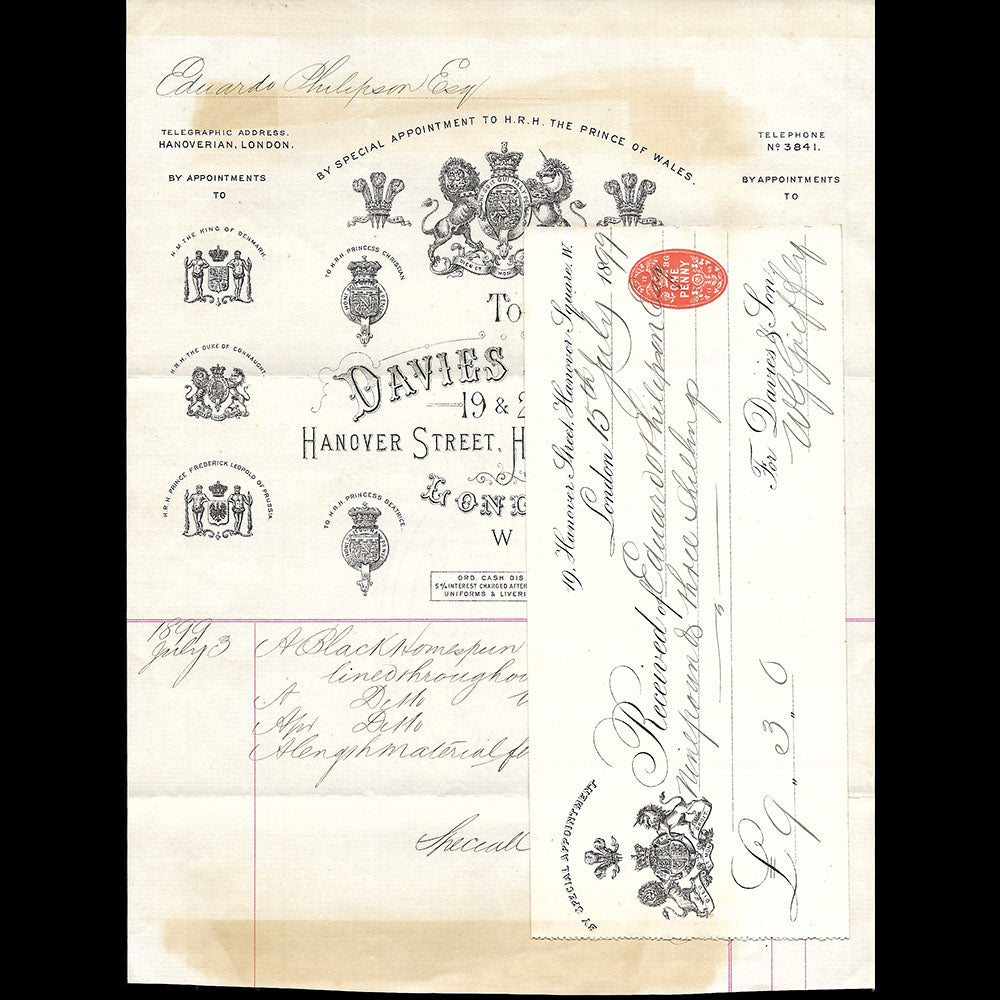 Eduardo Philipson Esq
TELEGRAPHIC ADDRESS.
HANOVERIAN, LONDON.
BY SPECIAL APPOINTMENT TO H.R.H. THE PRINCE OF WALES.
TELEPHONE
No 3841.
BY APPOINTMENTS
TO
BY APPOINTMENTS
TO
H.M. THE KING OF DENMARK.
TO H.R.H. PRINCESS CHRISTIAN.
H.R.H. THE DUKE OF CONNAUGHT.
H.R.H. PRINCE FREDERICK LEOPOLD OF PRUSSIA.
TO H.R.H. PRINCESS BEATRICE.
To
DAVIES
19 & 2
HANOVER STREET, H
LOND
W
ORD. CASH DIS
5% INTEREST CHARGED AFTER
UNIFORMS & LIVERI
1899
July 3
A Black Homespun
lined throughou
A Ditto
Ditto
A length material f
Speciall
BY SPECIAL APPOINTMENT
19, Hanover Street, Hanover Square, W.
London 15th July 1899
Received of Eduardo Philipson Esq
Nine pound & three Shelling
£9 " 3 " 0
For Davies & Son,
W G Griffey
ONE
PENNY